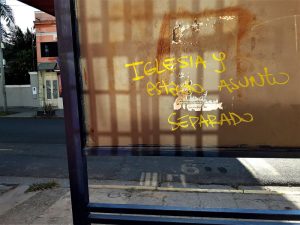 IGLESIA Y
estado, ASUNTO
SEPARADO